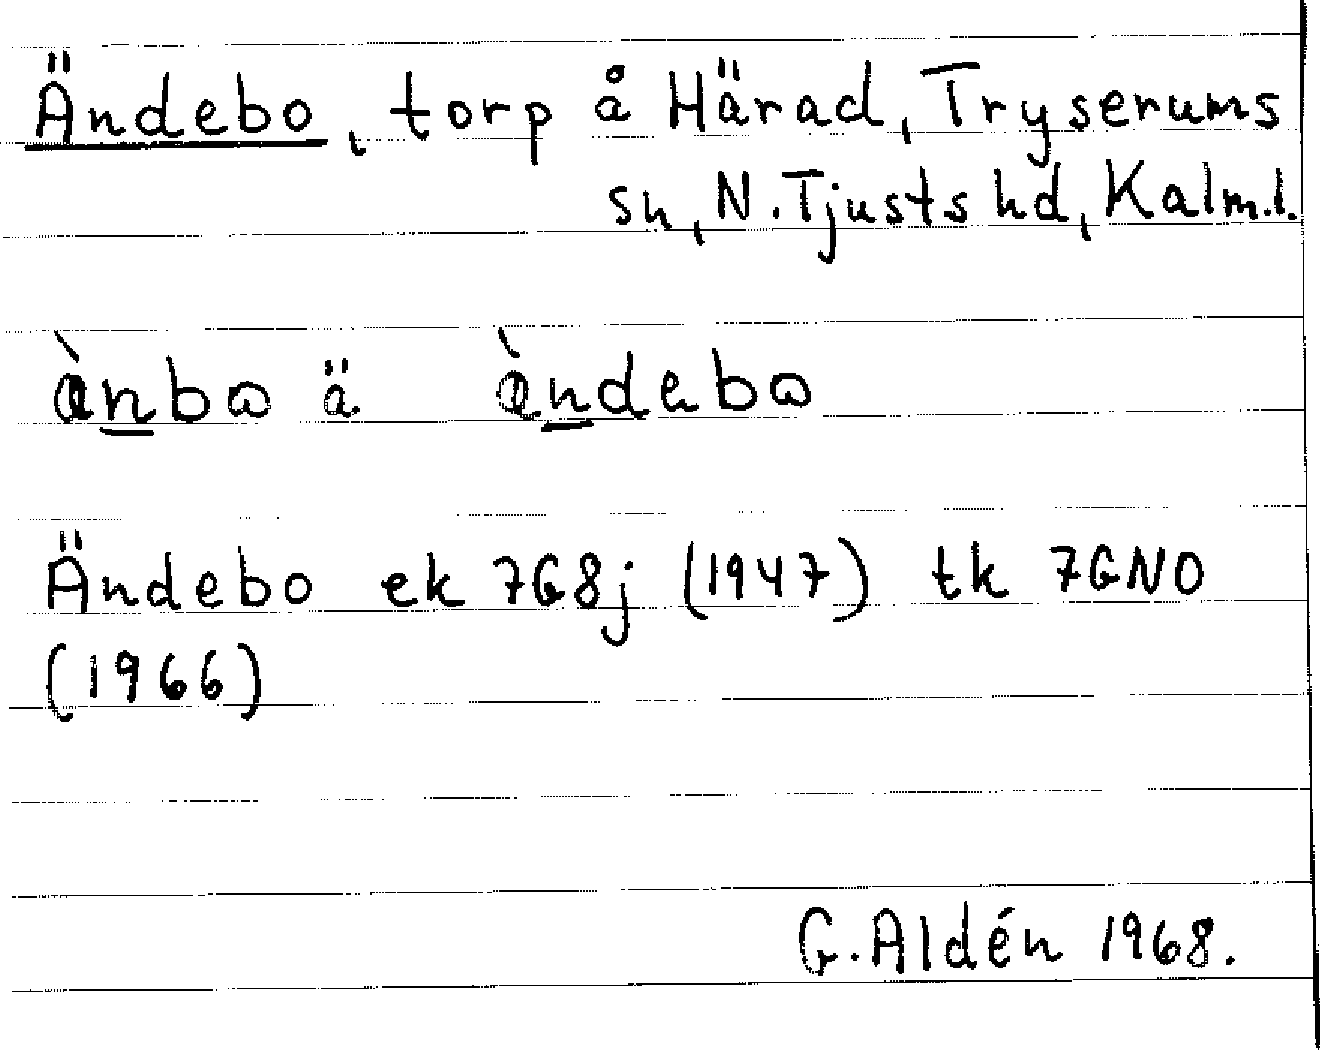 Ändebo, torp å Härad, Tryserums
sn, N. Tjusts hd, Kalm.l.
ànbω ä àndebω
Ändebo ek 7G8j (1947) tk 7GNO
(1966)
G. Aldén 1968.